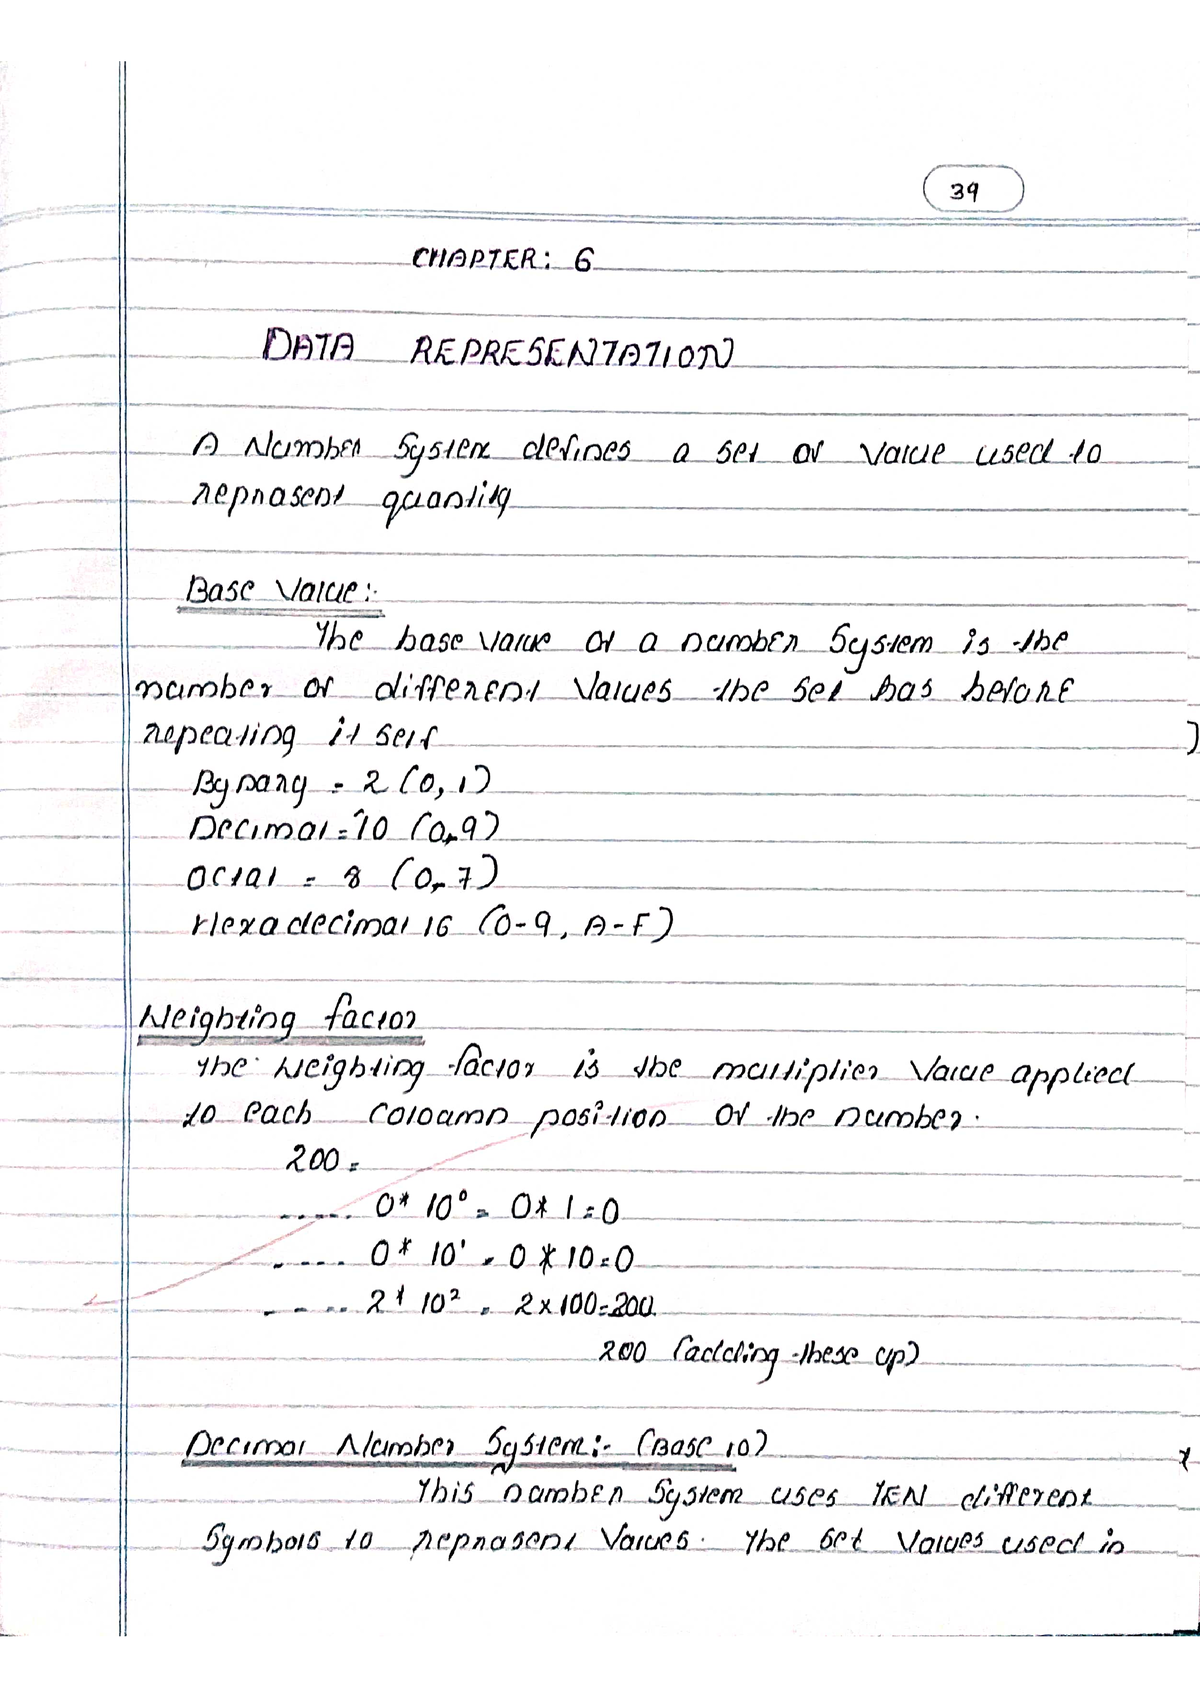 39
CHAPTER: 6
DATA REPRESENTATION
A Number System defines a set of value used to
reprasent quantity
Base Value:-
The base value of a number System is the
number of different values the set has before
repeating it self
Bynary = 2 (0, 1)
Decimal = 10 (0-9)
Octal = 8 (0-7)
Hexadecimal 16 (0-9, A-F)
Weighting factor
The weighting factor is the multiplier value applied
to each coloamn position of the number.
200 =
..... 0* 10⁰ = 0* 1 = 0
..... 0* 10¹ = 0 * 10 = 0
..... 2* 10² = 2x100=200.
200 (adding these up)
Decimal Number System:- (Base 10)
This number System uses TEN different
Symbols to reprasent values. The set values used in